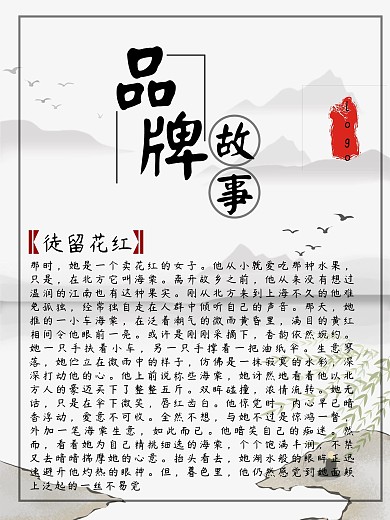 品牌
故事
logo
【徒留花红】
那时，她是一个卖花红的女子。他从小就爱吃那种水果，
只是，在北方它叫海棠。离开故乡之前，他从来没有想过
温润的江南也有这种果实。刚从北方来到上海不久的他难
免孤独，经常独自走在人群中倾听自己的声音。那天，她
推的一小车海棠，在泛着潮气的微雨黄昏里，满目的黄红
相间令他眼前一亮。或许是刚刚采摘下，香韵依然婉约。
她一只手扶着小车，另一只手撑着一把油纸伞。生意寥
落，她伫立在微雨中的样子，仿佛是一抹寂寞的水彩，深
深打动他的心。他上前说称些海棠，她讶然地看着他以北
方人的豪迈买下了整整五斤。双眸碰撞，浓情流转。她无
话，只是在伞下微笑，唇红齿白。他惊觉时，内心早已暗
香浮动，爱意不可收。全然不想，与她不过是惊鸿一瞥，
外加一笔海棠生意，如此而已。他暗笑自己的痴迷。然
而，看着她为自己精挑细选的海棠，个个饱满丰润，不禁
又去暗暗揣摩她的心意。抬头看去，她湖水般的眼眸正迅
速避开他灼热的眼神。但，暮色里，他仍然感觉到她面颊
上泛起的一丝不易觉